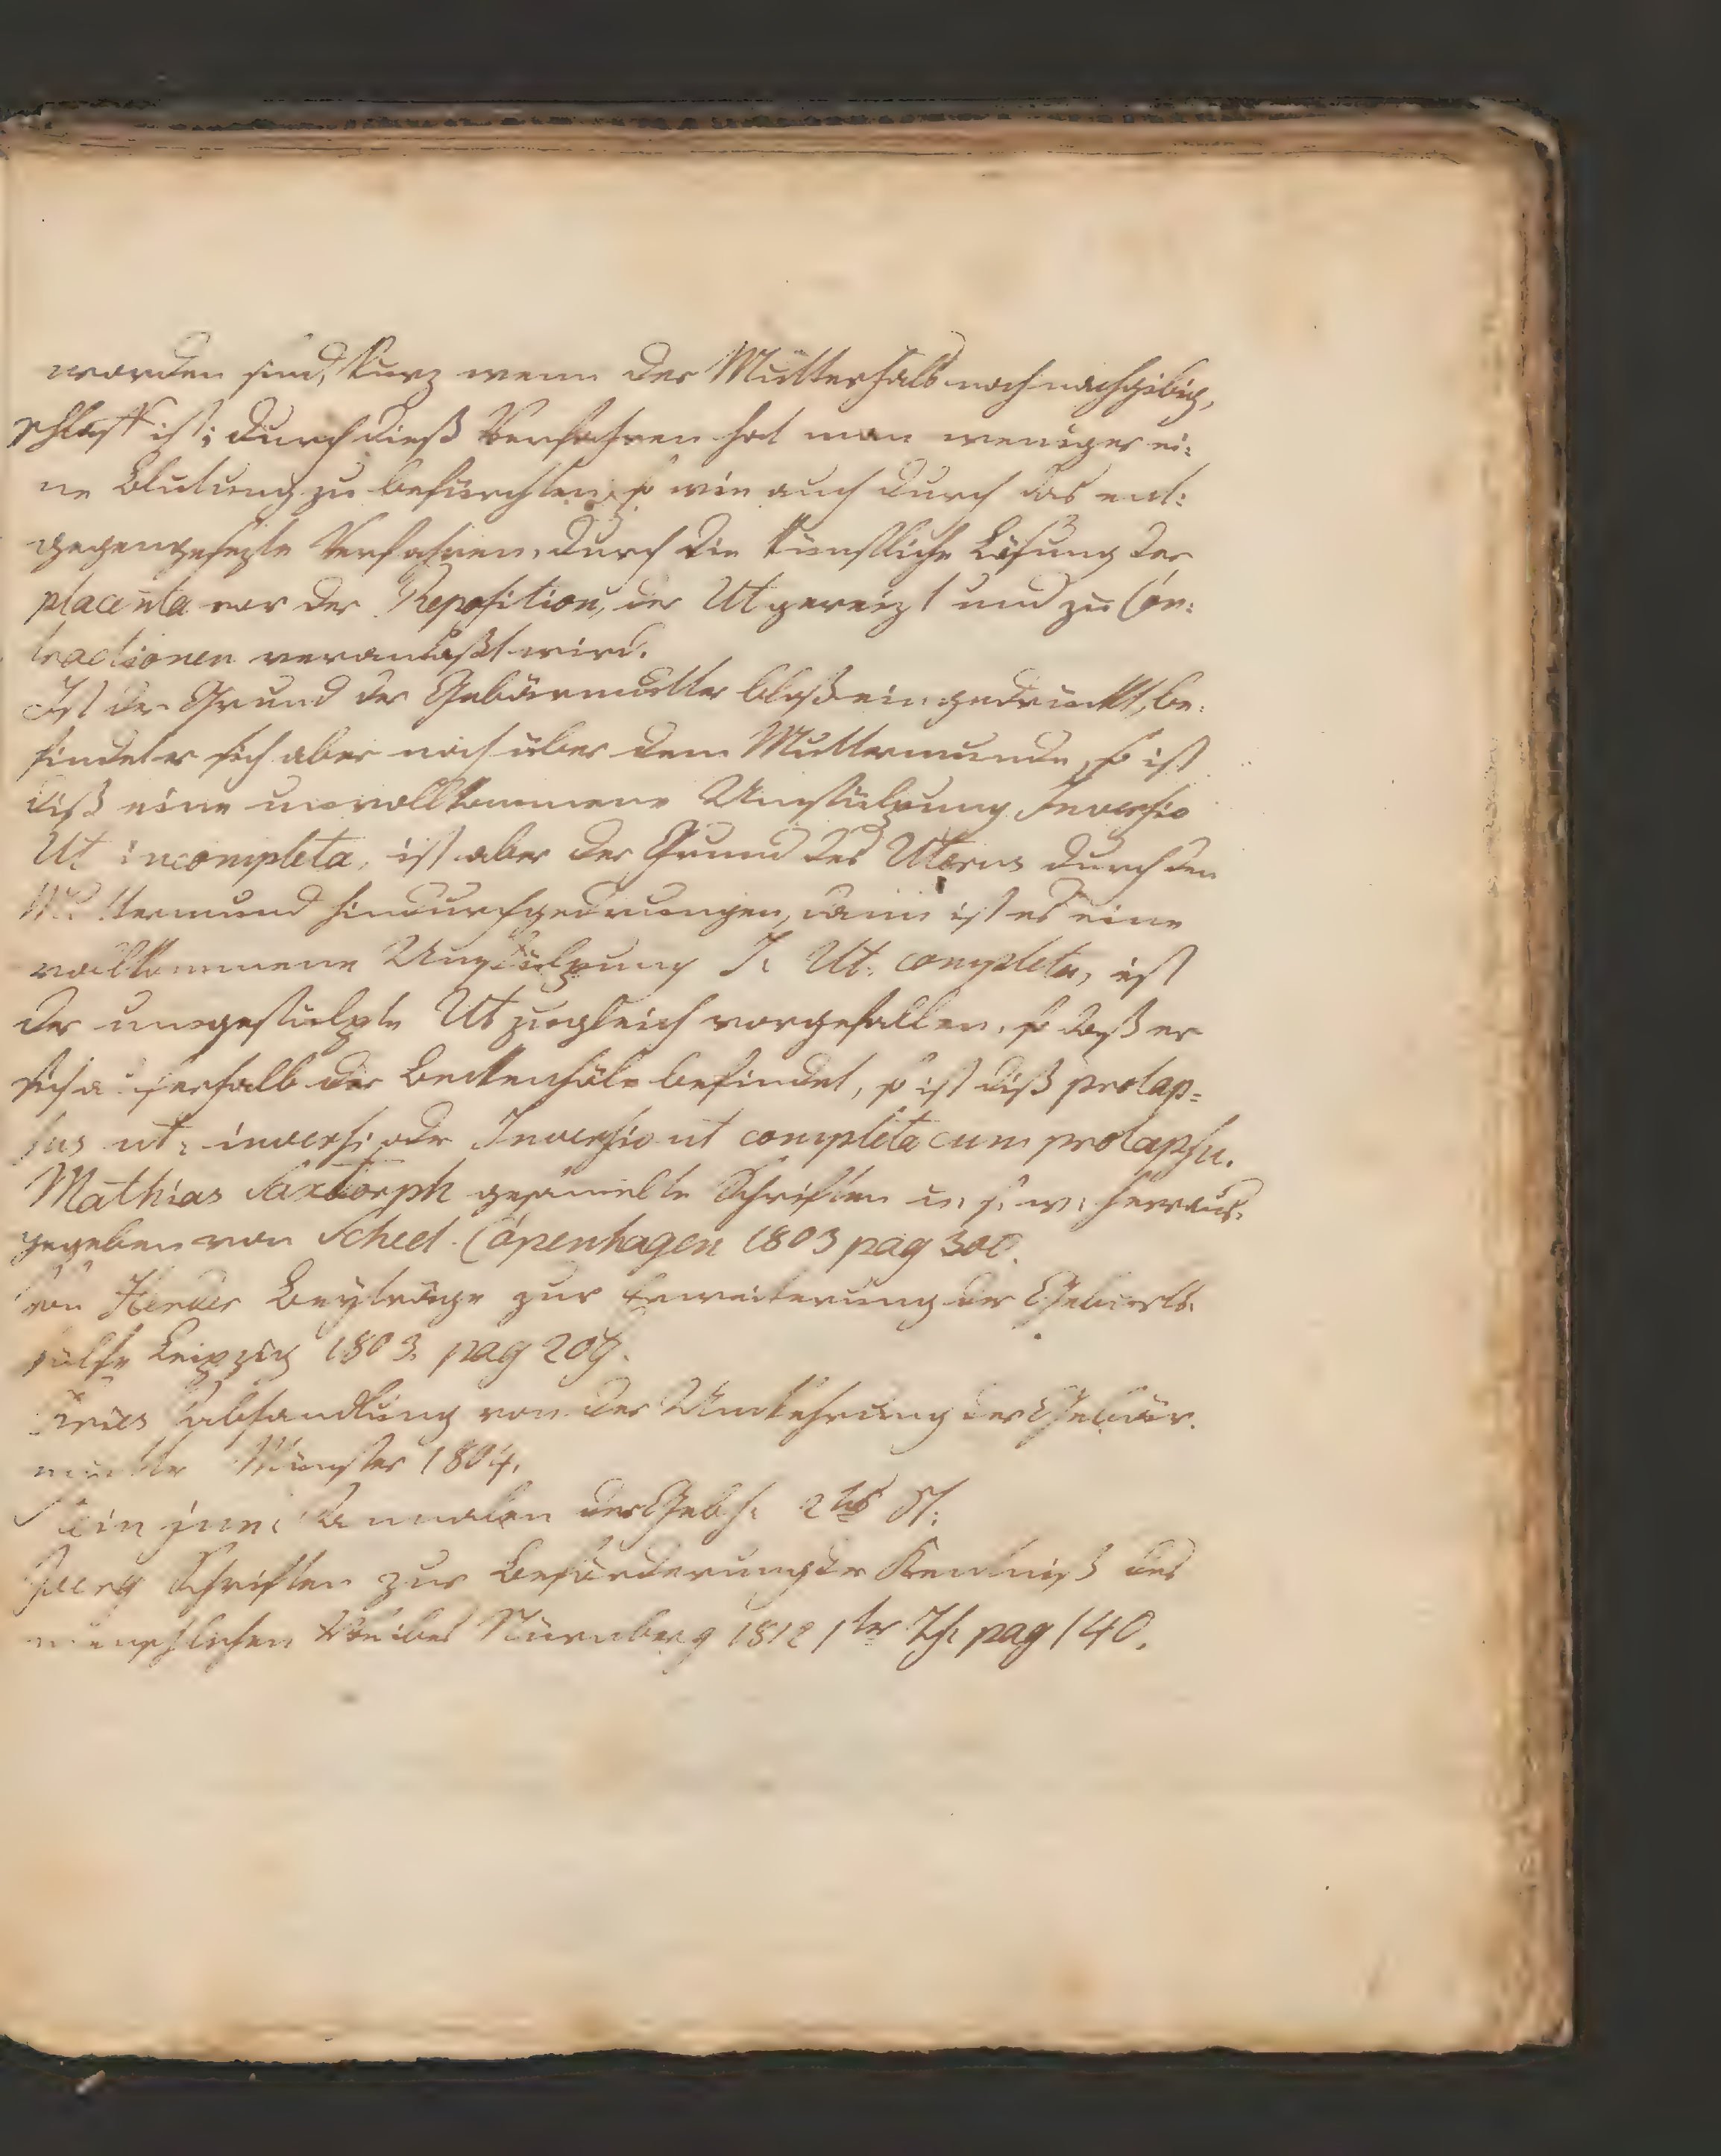 worden sind, kurz wenn der Mutterhals noch nachgibig,
schlaff ist; durch dieß Verfahren hat man weniger ei:
ne Blutung zu befürchten, so wie auch durch das ent:
gegengesezte Verfahren, durch die künstliche Lösung der
placenta vor der Reposition, der Ut gereizt und zu Con:
tractionen veranlaßt wird.
Ist der Grund der Gebärmutter bloß eingedrückt, be:
findet er sich aber noch über dem Muttermunde, so ist
diß eine unvollkommene Umstülpung Inversio
Ut incompleta, ist aber der Grund des Uterus durch den
Muttermund hindurchgedrungen, dann ist es eine
vollkommene Umstülpung I. Ut. completa, ist
der umgestülpte Ut zugleich vorgefallen, so daß er
sich außerhalb der Beckenhöle befindet, so ist diß prolap=
sus ut: inversi oder Inversio ut completa cum prolapsu.
Mathias Saxtorph gesamelte Schriften u. s. w. herraus:
gegeben von Scheel. Copenhagen 1803 pag 300.
von Herder Beyträge zur Erweiterung der Geburts:
hülfe Leipzig 1803. pag 209.
Fries Abhandlung von der Umkehrung der Gebär:
mutter Münster 1804.
Stein jun: Annalen der Gebh: 2tes St:
Joerg Schriften zur Beförderung der Kentniß des
menschlichen Weibes Nürnberg 1812 1ter Th: pag 140.